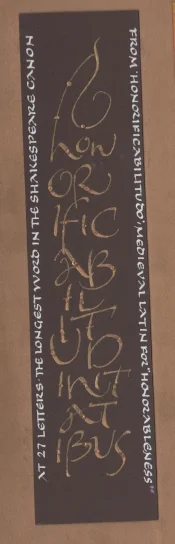 AT 27 LETTERS · THE LONGEST WORD IN THE SHAKESPEARE CANON
hon
OR
IFIC
AB
IL
ITUD
INIT
AT
IBUS
FROM "HONORIFICABILITUDO", MEDIEVAL LATIN FOR "HONORABLENESS"